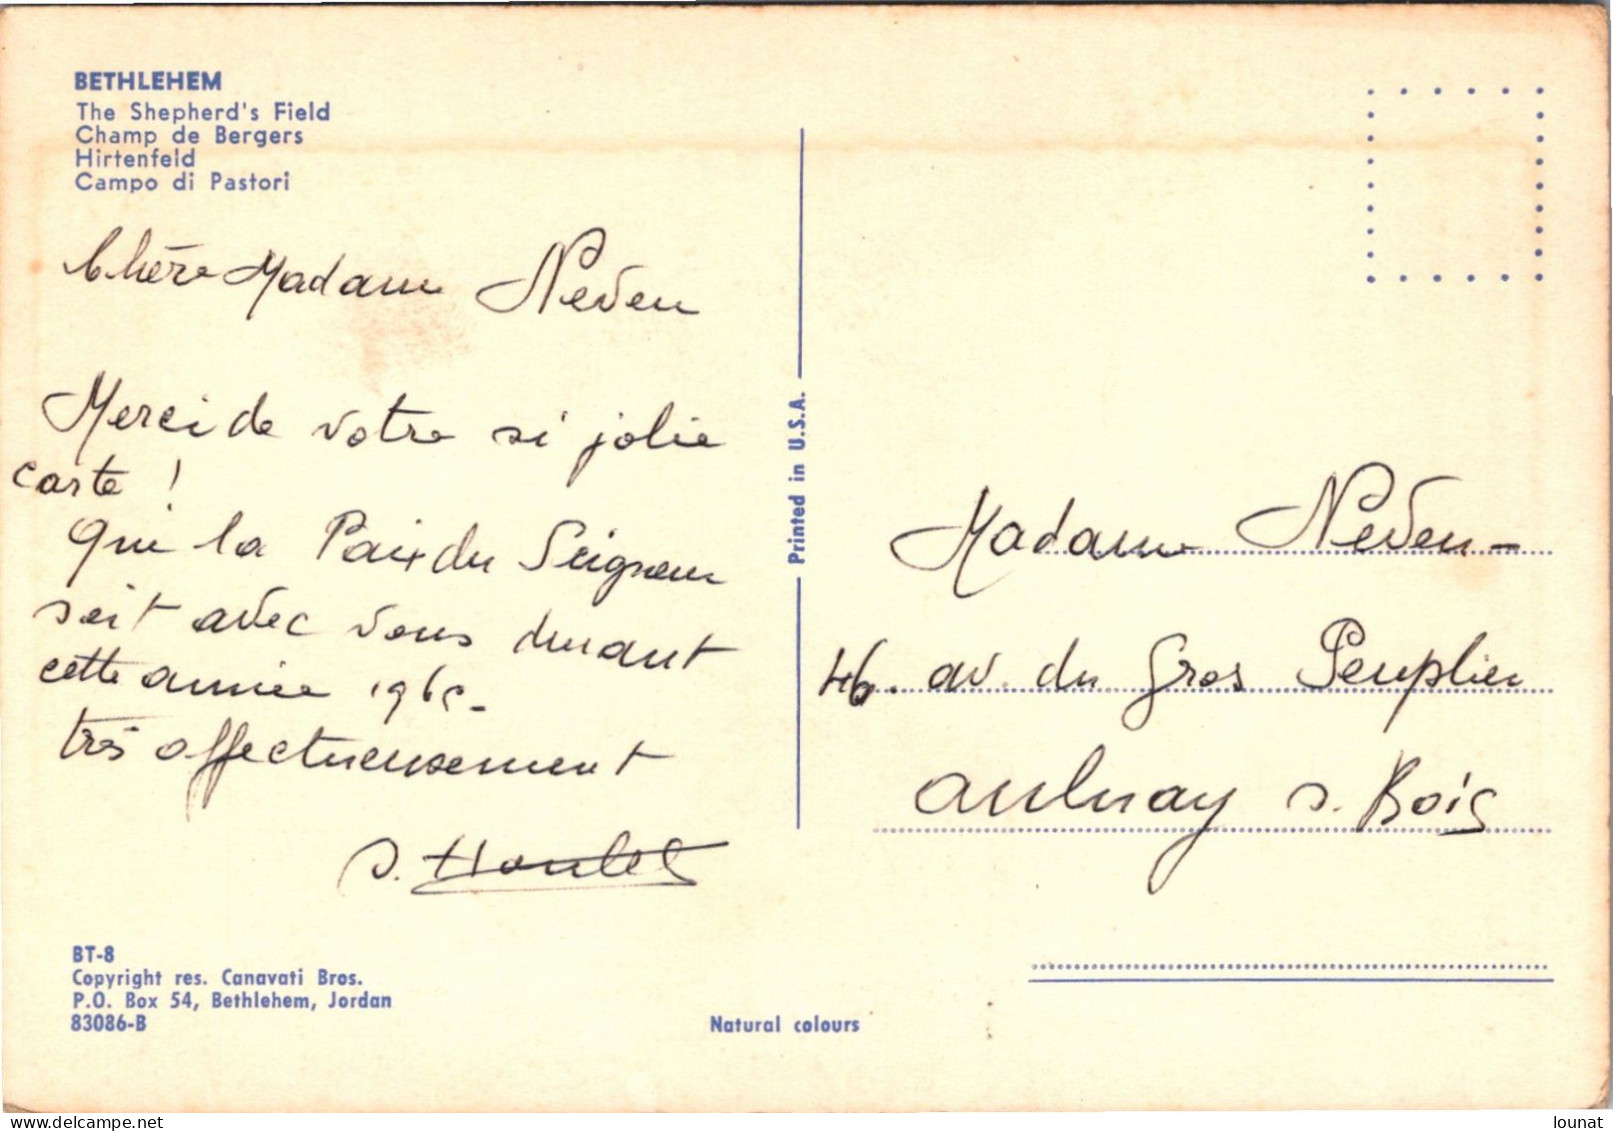 BETHLEHEM
The Shepherd's Field
Champ de Bergers
Hirtenfeld
Campo di Pastori
Chère Madame Neveu
Merci de votre si jolie
carte !
Que la Paix du Seigneur
soit avec vous durant
cette année 1965 -
très affectueusement
S. Houlet
BT-8
Copyright res. Canavati Bros.
P.O. Box 54, Bethlehem, Jordan
83086-B
Printed in U.S.A.
Natural colours
Madame Neveu -
46. av. du Gros Peuplier
Aulnay s. Bois
lounat